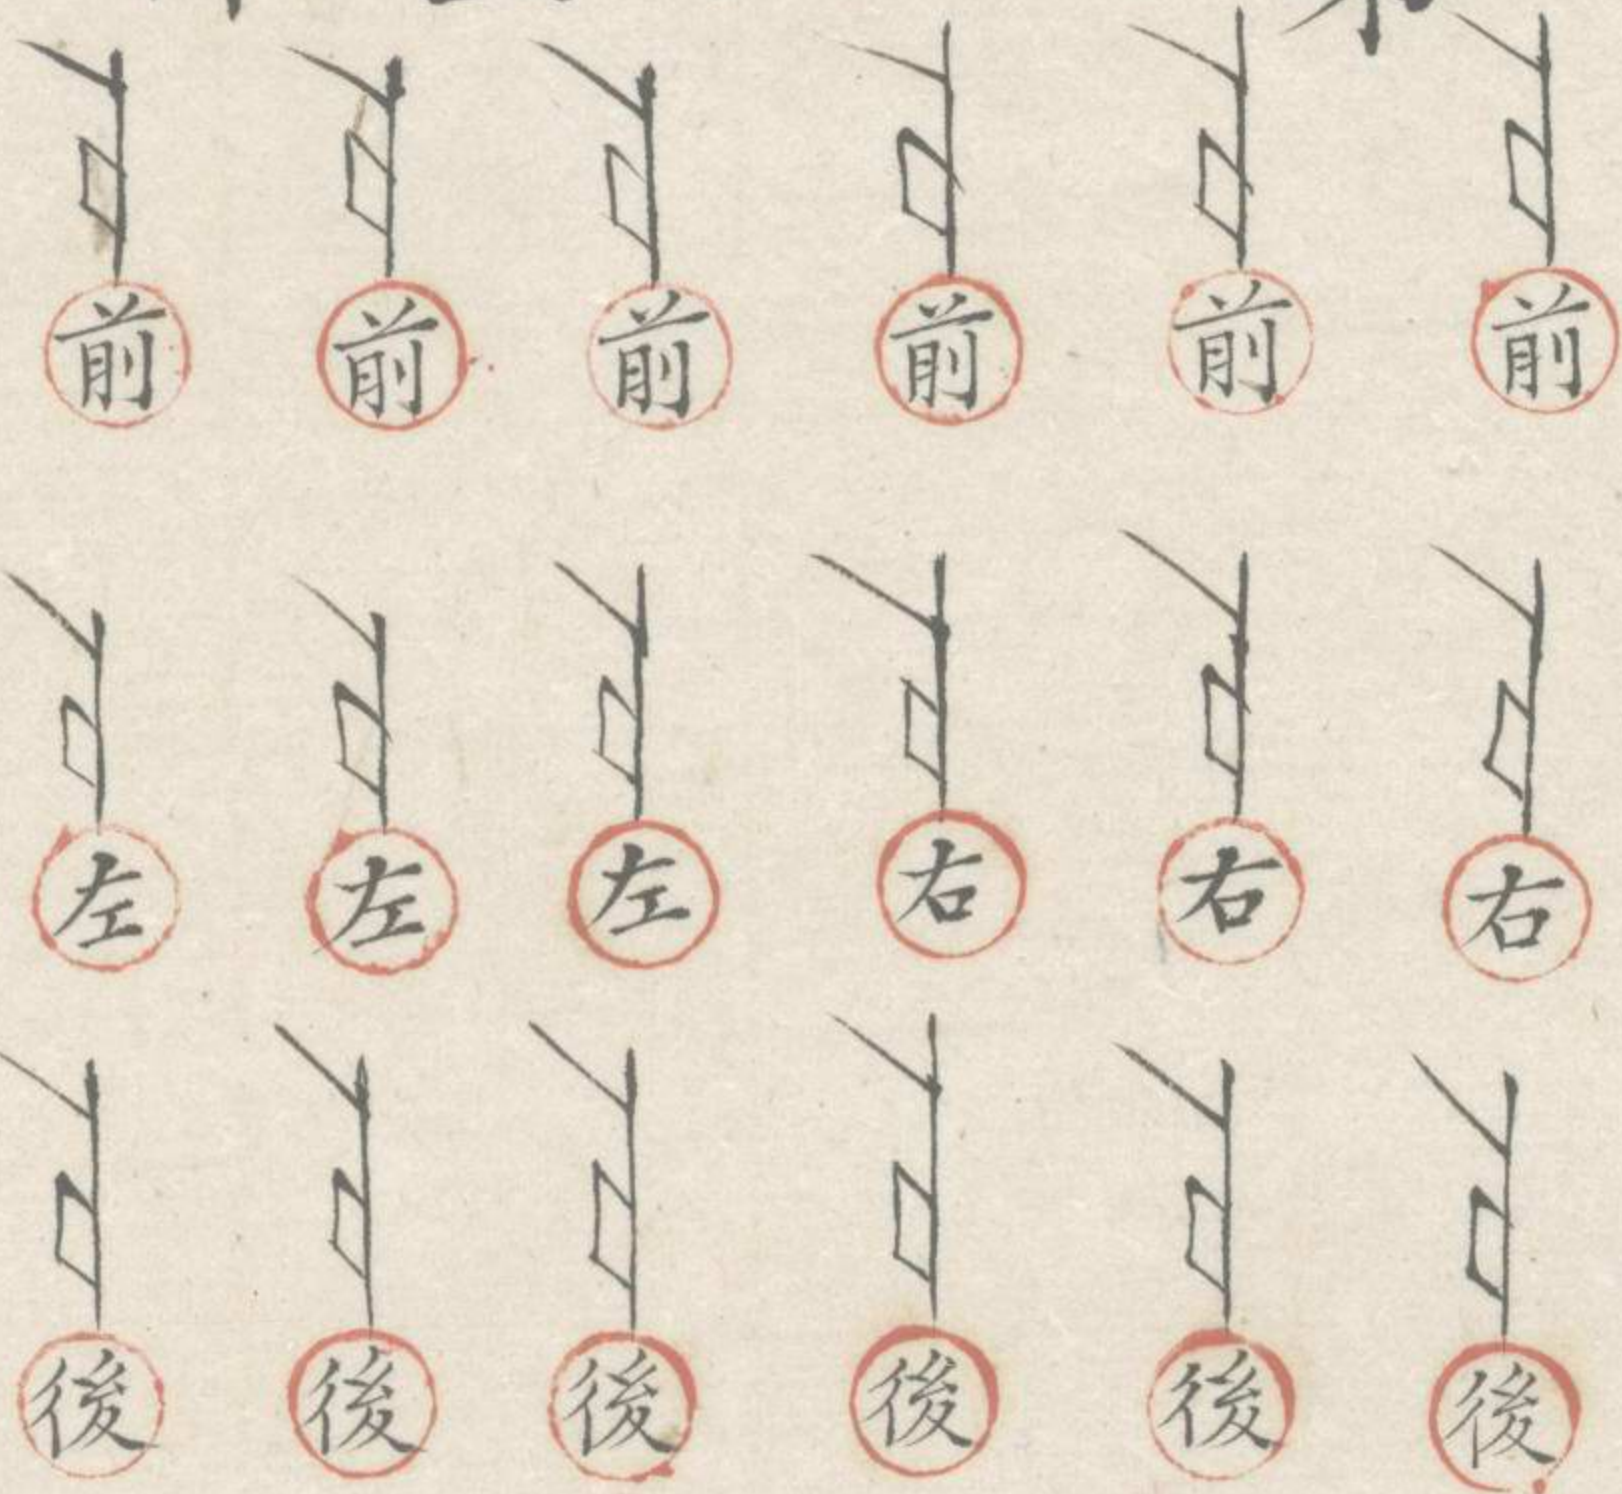 前 前 前 前 前 前
左 左 左 右 右 右
後 後 後 後 後 後